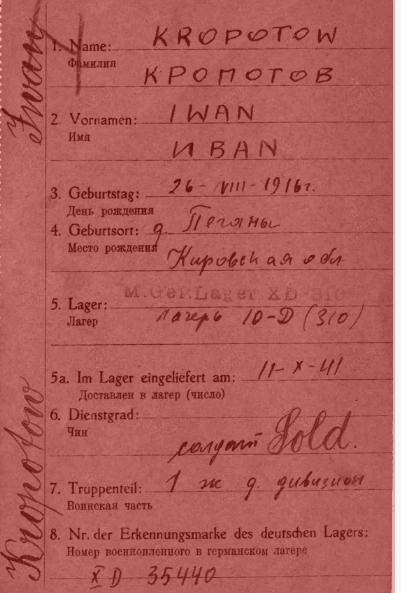 Iwan
Kropotow
1. Name: KROPOTOW
Фамилия
КРОПОТОВ
2. Vornamen: IWAN
Имя
ИВАН
3. Geburtstag: 26-VIII-1916г.
День рождения
4. Geburtsort: д. Пегачы
Место рождения
Кировская обл
M.GeF.Lager XD-310
5. Lager: лагерь 10-D (310)
Лагерь
5a. Im Lager eingeliefert am: 11-X-41
Доставлен в лагерь (число)
6. Dienstgrad:
Чин
солдат Sold.
7. Truppenteil: 1 ж д. дивизион
Воинская часть
8. Nr. der Erkennungsmarke des deutschen Lagers:
Номер военнопленного в германском лагере
XD 35440